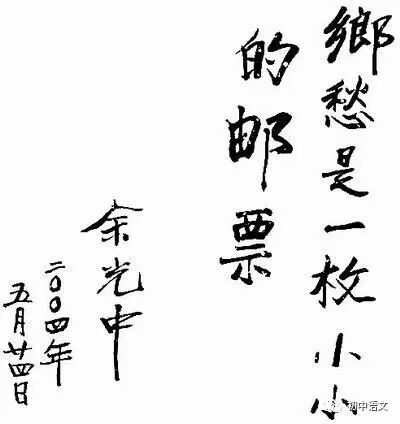 鄉愁是一枚小小
的邮票
余光中
二〇〇四年
五月廿四日
初中语文